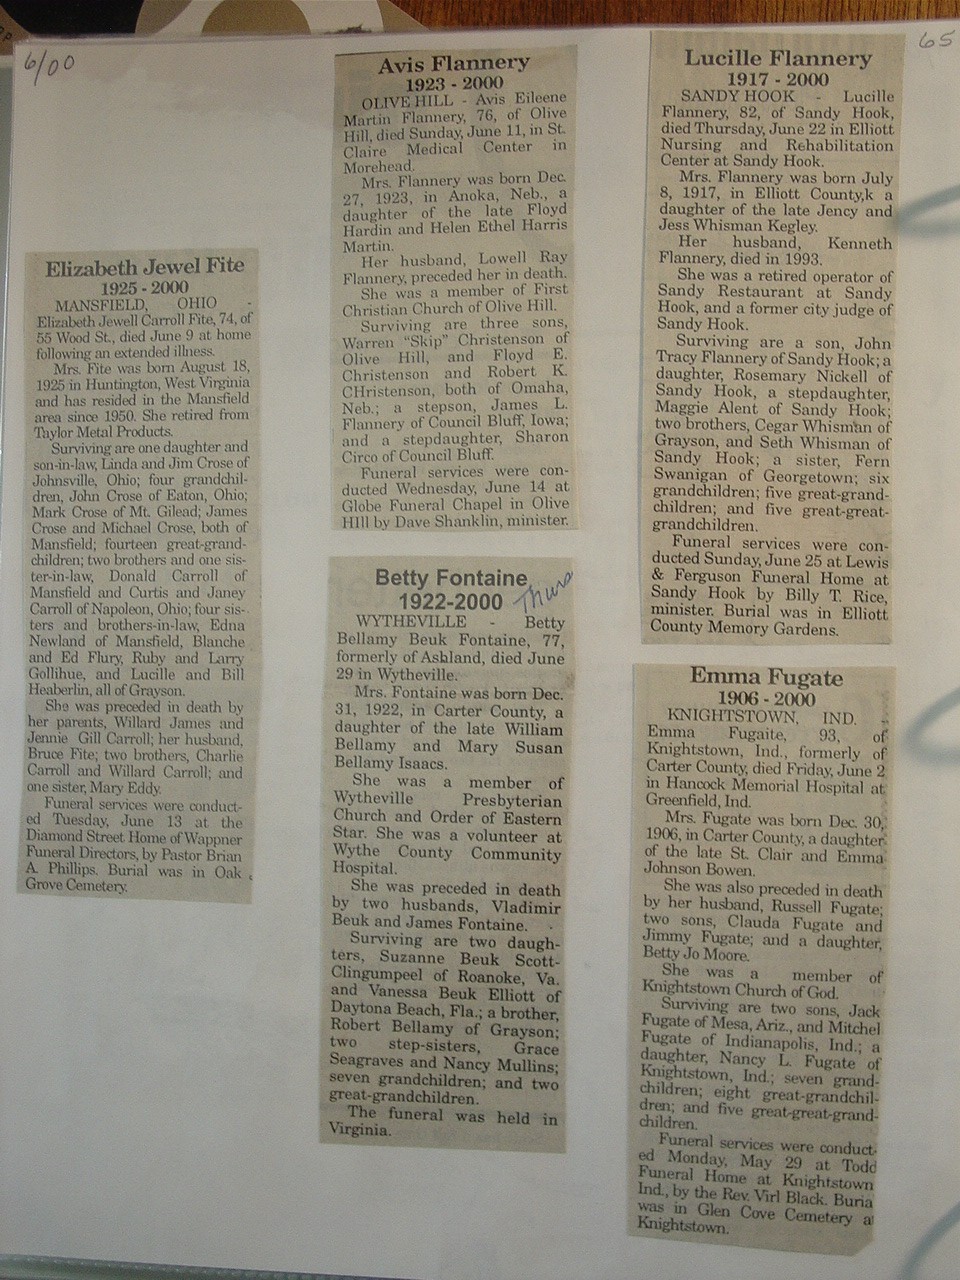 6/00
65
Elizabeth Jewel Fite
1925 - 2000
MANSFIELD, OHIO -
Elizabeth Jewell Carroll Fite, 74, of
55 Wood St., died June 9 at home
following an extended illness.
Mrs. Fite was born August 18,
1925 in Huntington, West Virginia
and has resided in the Mansfield
area since 1950. She retired from
Taylor Metal Products.
Surviving are one daughter and
son-in-law, Linda and Jim Crose of
Johnsville, Ohio; four grandchil-
dren, John Crose of Eaton, Ohio;
Mark Crose of Mt. Gilead; James
Crose and Michael Crose, both of
Mansfield; fourteen great-grand-
children; two brothers and one sis-
ter-in-law, Donald Carroll of
Mansfield and Curtis and Janey
Carroll of Napoleon, Ohio; four sis-
ters and brothers-in-law, Edna
Newland of Mansfield, Blanche
and Ed Flury, Ruby and Larry
Gollihue, and Lucille and Bill
Heaberlin, all of Grayson.
She was preceded in death by
her parents, Willard James and
Jennie Gill Carroll; her husband,
Bruce Fite; two brothers, Charlie
Carroll and Willard Carroll; and
one sister, Mary Eddy.
Funeral services were conduct-
ed Tuesday, June 13 at the
Diamond Street Home of Wappner
Funeral Directors, by Pastor Brian
A. Phillips. Burial was in Oak
Grove Cemetery.
Avis Flannery
1923 - 2000
OLIVE HILL - Avis Eileene
Martin Flannery, 76, of Olive
Hill, died Sunday, June 11, in St.
Claire Medical Center in
Morehead.
Mrs. Flannery was born Dec.
27, 1923, in Anoka, Neb., a
daughter of the late Floyd
Hardin and Helen Ethel Harris
Martin.
Her husband, Lowell Ray
Flannery, preceded her in death.
She was a member of First
Christian Church of Olive Hill.
Surviving are three sons,
Warren "Skip" Christenson of
Olive Hill, and Floyd E.
Christenson and Robert K.
CHristenson, both of Omaha,
Neb.; a stepson, James L.
Flannery of Council Bluff, Iowa;
and a stepdaughter, Sharon
Circo of Council Bluff.
Funeral services were con-
ducted Wednesday, June 14 at
Globe Funeral Chapel in Olive
HIll by Dave Shanklin, minister.
Betty Fontaine
1922-2000
Thurs
WYTHEVILLE - Betty
Bellamy Beuk Fontaine, 77,
formerly of Ashland, died June
29 in Wytheville.
Mrs. Fontaine was born Dec.
31, 1922, in Carter County, a
daughter of the late William
Bellamy and Mary Susan
Bellamy Isaacs.
She was a member of
Wytheville Presbyterian
Church and Order of Eastern
Star. She was a volunteer at
Wythe County Community
Hospital.
She was preceded in death
by two husbands, Vladimir
Beuk and James Fontaine.
Surviving are two daugh-
ters, Suzanne Beuk Scott-
Clingumpeel of Roanoke, Va.
and Vanessa Beuk Elliott of
Daytona Beach, Fla.; a brother,
Robert Bellamy of Grayson;
two step-sisters, Grace
Seagraves and Nancy Mullins;
seven grandchildren; and two
great-grandchildren.
The funeral was held in
Virginia.
Lucille Flannery
1917 - 2000
SANDY HOOK - Lucille
Flannery, 82, of Sandy Hook,
died Thursday, June 22 in Elliott
Nursing and Rehabilitation
Center at Sandy Hook.
Mrs. Flannery was born July
8, 1917, in Elliott County,k a
daughter of the late Jency and
Jess Whisman Kegley.
Her husband, Kenneth
Flannery, died in 1993.
She was a retired operator of
Sandy Restaurant at Sandy
Hook, and a former city judge of
Sandy Hook.
Surviving are a son, John
Tracy Flannery of Sandy Hook; a
daughter, Rosemary Nickell of
Sandy Hook, a stepdaughter,
Maggie Alent of Sandy Hook;
two brothers, Cegar Whisman of
Grayson, and Seth Whisman of
Sandy Hook; a sister, Fern
Swanigan of Georgetown; six
grandchildren; five great-grand-
children; and five great-great-
grandchildren.
Funeral services were con-
ducted Sunday, June 25 at Lewis
& Ferguson Funeral Home at
Sandy Hook by Billy T. Rice,
minister. Burial was in Elliott
County Memory Gardens.
Emma Fugate
1906 - 2000
KNIGHTSTOWN, IND. -
Emma Fugaite, 93, of
Knightstown, Ind., formerly of
Carter County, died Friday, June 2
in Hancock Memorial Hospital at
Greenfield, Ind.
Mrs. Fugate was born Dec. 30,
1906, in Carter County, a daughter
of the late St. Clair and Emma
Johnson Bowen.
She was also preceded in death
by her husband, Russell Fugate;
two sons, Clauda Fugate and
Jimmy Fugate; and a daughter,
Betty Jo Moore.
She was a member of
Knightstown Church of God.
Surviving are two sons, Jack
Fugate of Mesa, Ariz., and Mitchel
Fugate of Indianapolis, Ind.; a
daughter, Nancy L. Fugate of
Knightstown, Ind.; seven grand-
children; eight great-grandchil-
dren; and five great-great-grand-
children.
Funeral services were conduct-
ed Monday, May 29 at Todd
Funeral Home at Knightstown
Ind., by the Rev. Virl Black. Buria
was in Glen Cove Cemetery at
Knightstown.